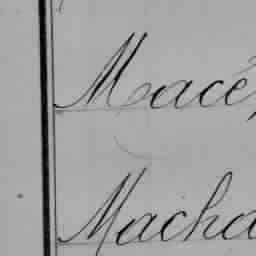 Macé,
Macha